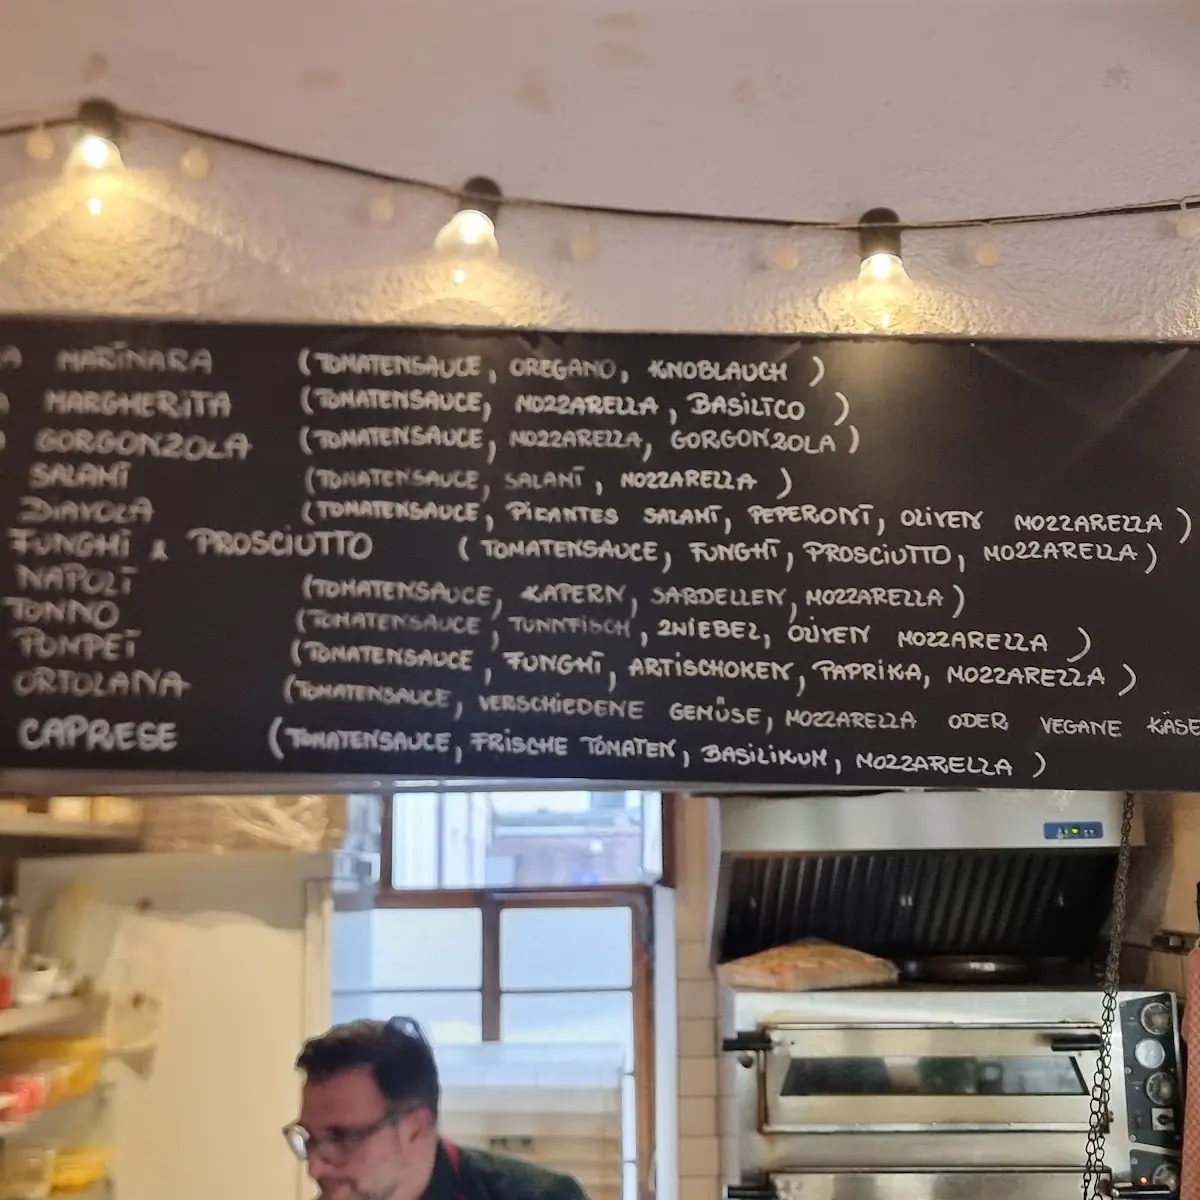 A MARINARA (TOMATENSAUCE, OREGANO, KNOBLAUCH)
MARGHERITA (TOMATENSAUCE, MOZZARELLA, BASILICO)
GORGONZOLA (TOMATENSAUCE, MOZZARELLA, GORGONZOLA)
SALAMI (TOMATENSAUCE, SALAMI, MOZZARELLA)
DIAVOLA (TOMATENSAUCE, PIKANTES SALAMI, PEPERONI, OLIVEN MOZZARELLA)
FUNGHI & PROSCIUTTO (TOMATENSAUCE, FUNGHI, PROSCIUTTO, MOZZARELLA)
NAPOLI (TOMATENSAUCE, KAPERN, SARDELLEN, MOZZARELLA)
TONNO (TOMATENSAUCE, TUNNFISCH, ZWIEBEL, OLIVEN MOZZARELLA)
POMPEI (TOMATENSAUCE, FUNGHI, ARTISCHOKEN, PAPRIKA, MOZZARELLA)
ORTOLANA (TOMATENSAUCE, VERSCHIEDENE GEMÜSE, MOZZARELLA ODER VEGANE KÄSE
CAPRESE (TOMATENSAUCE, FRISCHE TOMATEN, BASILIKUM, MOZZARELLA)